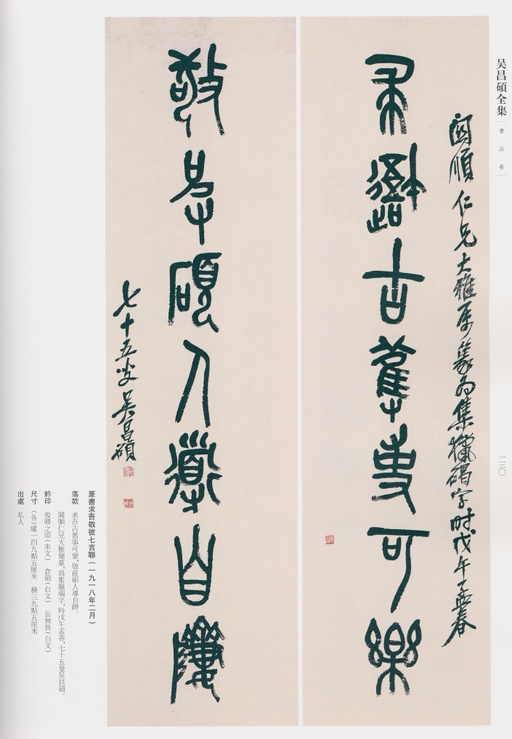 吴昌碩全集
書法卷
閎順仁兄大雅属篆為集獵碣字時戊午孟春
求吾古舊事可樂
敬彼碩人導自隮
七十五叟吴昌碩
篆書求吾敬彼七言聯（一九一八年二月）
落款 求吾古舊事可樂，敬彼碩人導自隮。
閎順仁兄大雅屬篆，爲集獵碣字，時戊午孟春，七十五叟吴昌碩。
鈐印 俊卿之印（朱文） 倉碩（白文） 缶無咎（白文）
尺寸 （各）縱一四九點五厘米 橫三九點五厘米
出處 私人